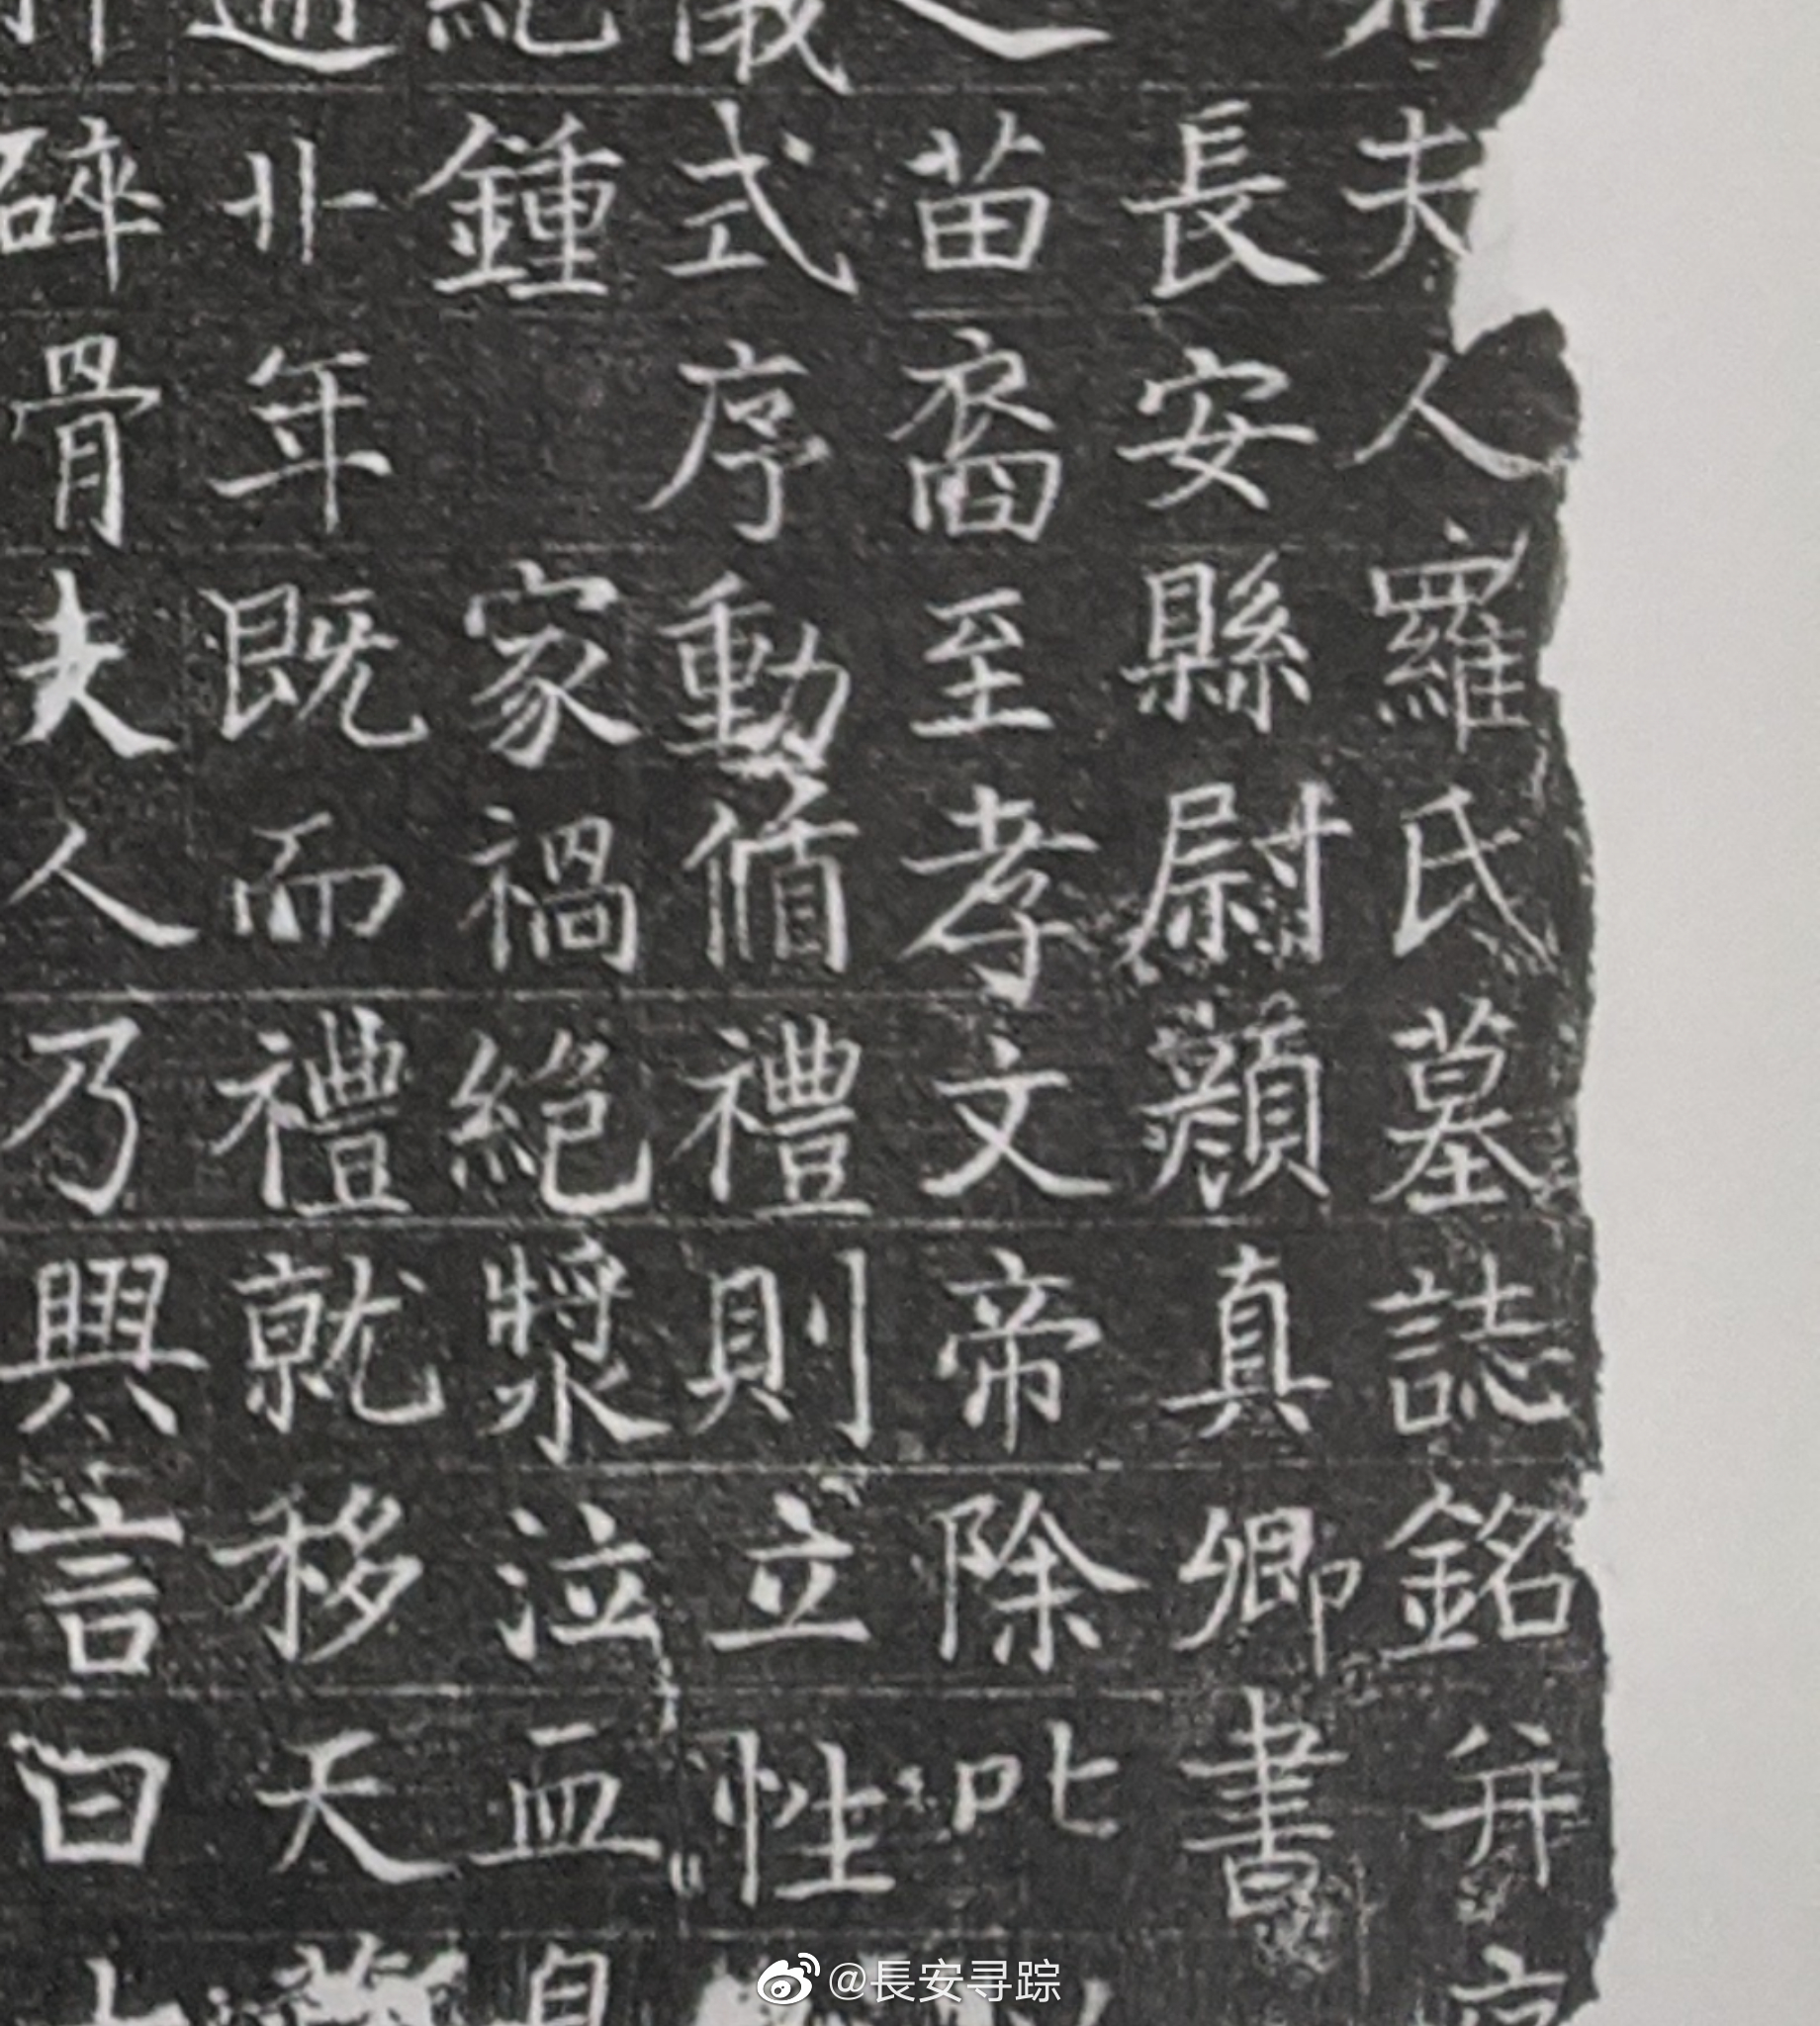 夫人羅氏墓誌銘并序
長安縣尉顏真卿書
苗裔至孝文帝除叱
式序動循禮則立性
鍾　家禍絕漿泣血
丱年既而禮就移天
碎骨夫人乃興言曰
@長安寻踪